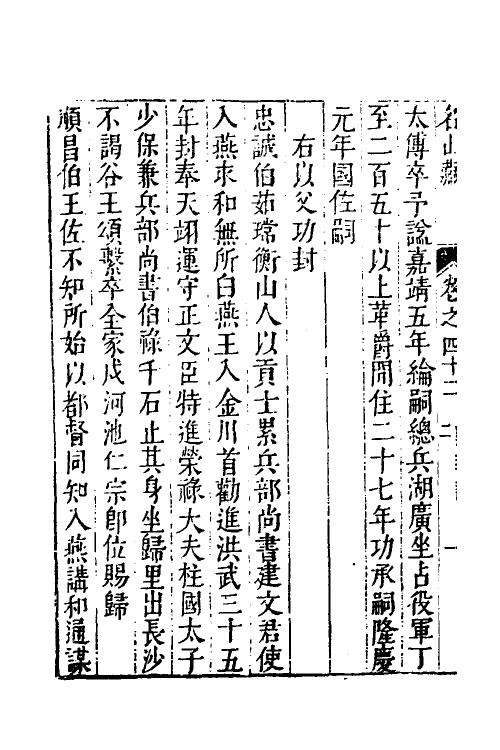 名山藏 卷之四十二 二
太傅卒予諡嘉靖五年綸嗣總兵湖廣坐占役軍丁
至二百五十以上革爵閒住二十七年功承嗣隆慶
元年國佐嗣
右以父功封
忠誠伯茹瑺衡山人以貢士累兵部尚書建文君使
入燕求和無所白燕王入金川首勸進洪武三十五
年封奉天翊運守正文臣特進榮祿大夫柱國太子
少保兼兵部尚書伯祿千石止其身坐歸里出長沙
不謁谷王頌繫卒全家戍河池仁宗卽位賜歸
順昌伯王佐不知所始以都督同知入燕講和通謀